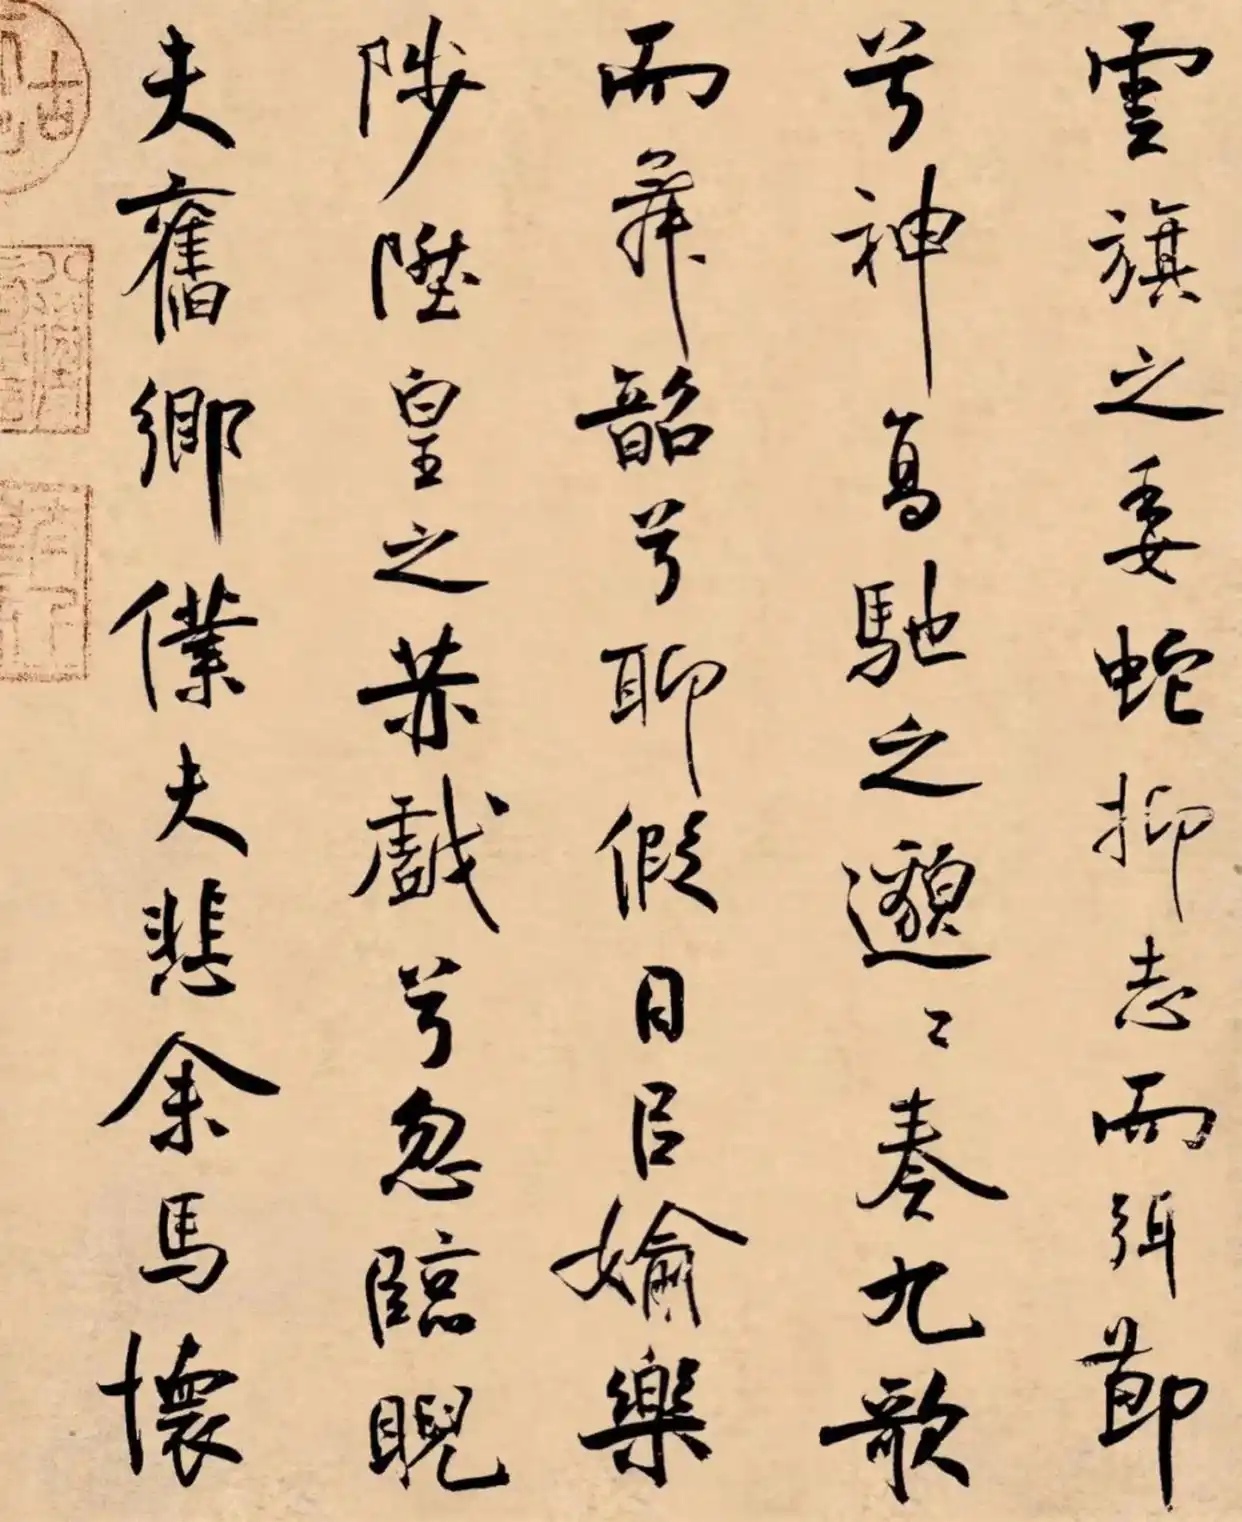 雲旗之委蛇抑志而弭節
兮神高馳之邈〻奏九歌
而舞韶兮聊假日㠯媮樂
陟陞皇之赫戲兮忽臨睨
夫舊鄉僕夫悲余馬懷